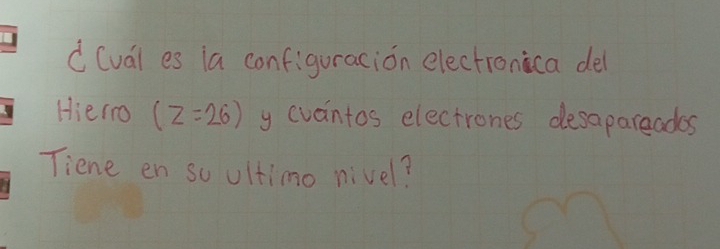 ¿Cuál es la configuración electronica del
Hierro (Z=26) y cuántos electrones desapareados
Tiene en su ultimo nivel?